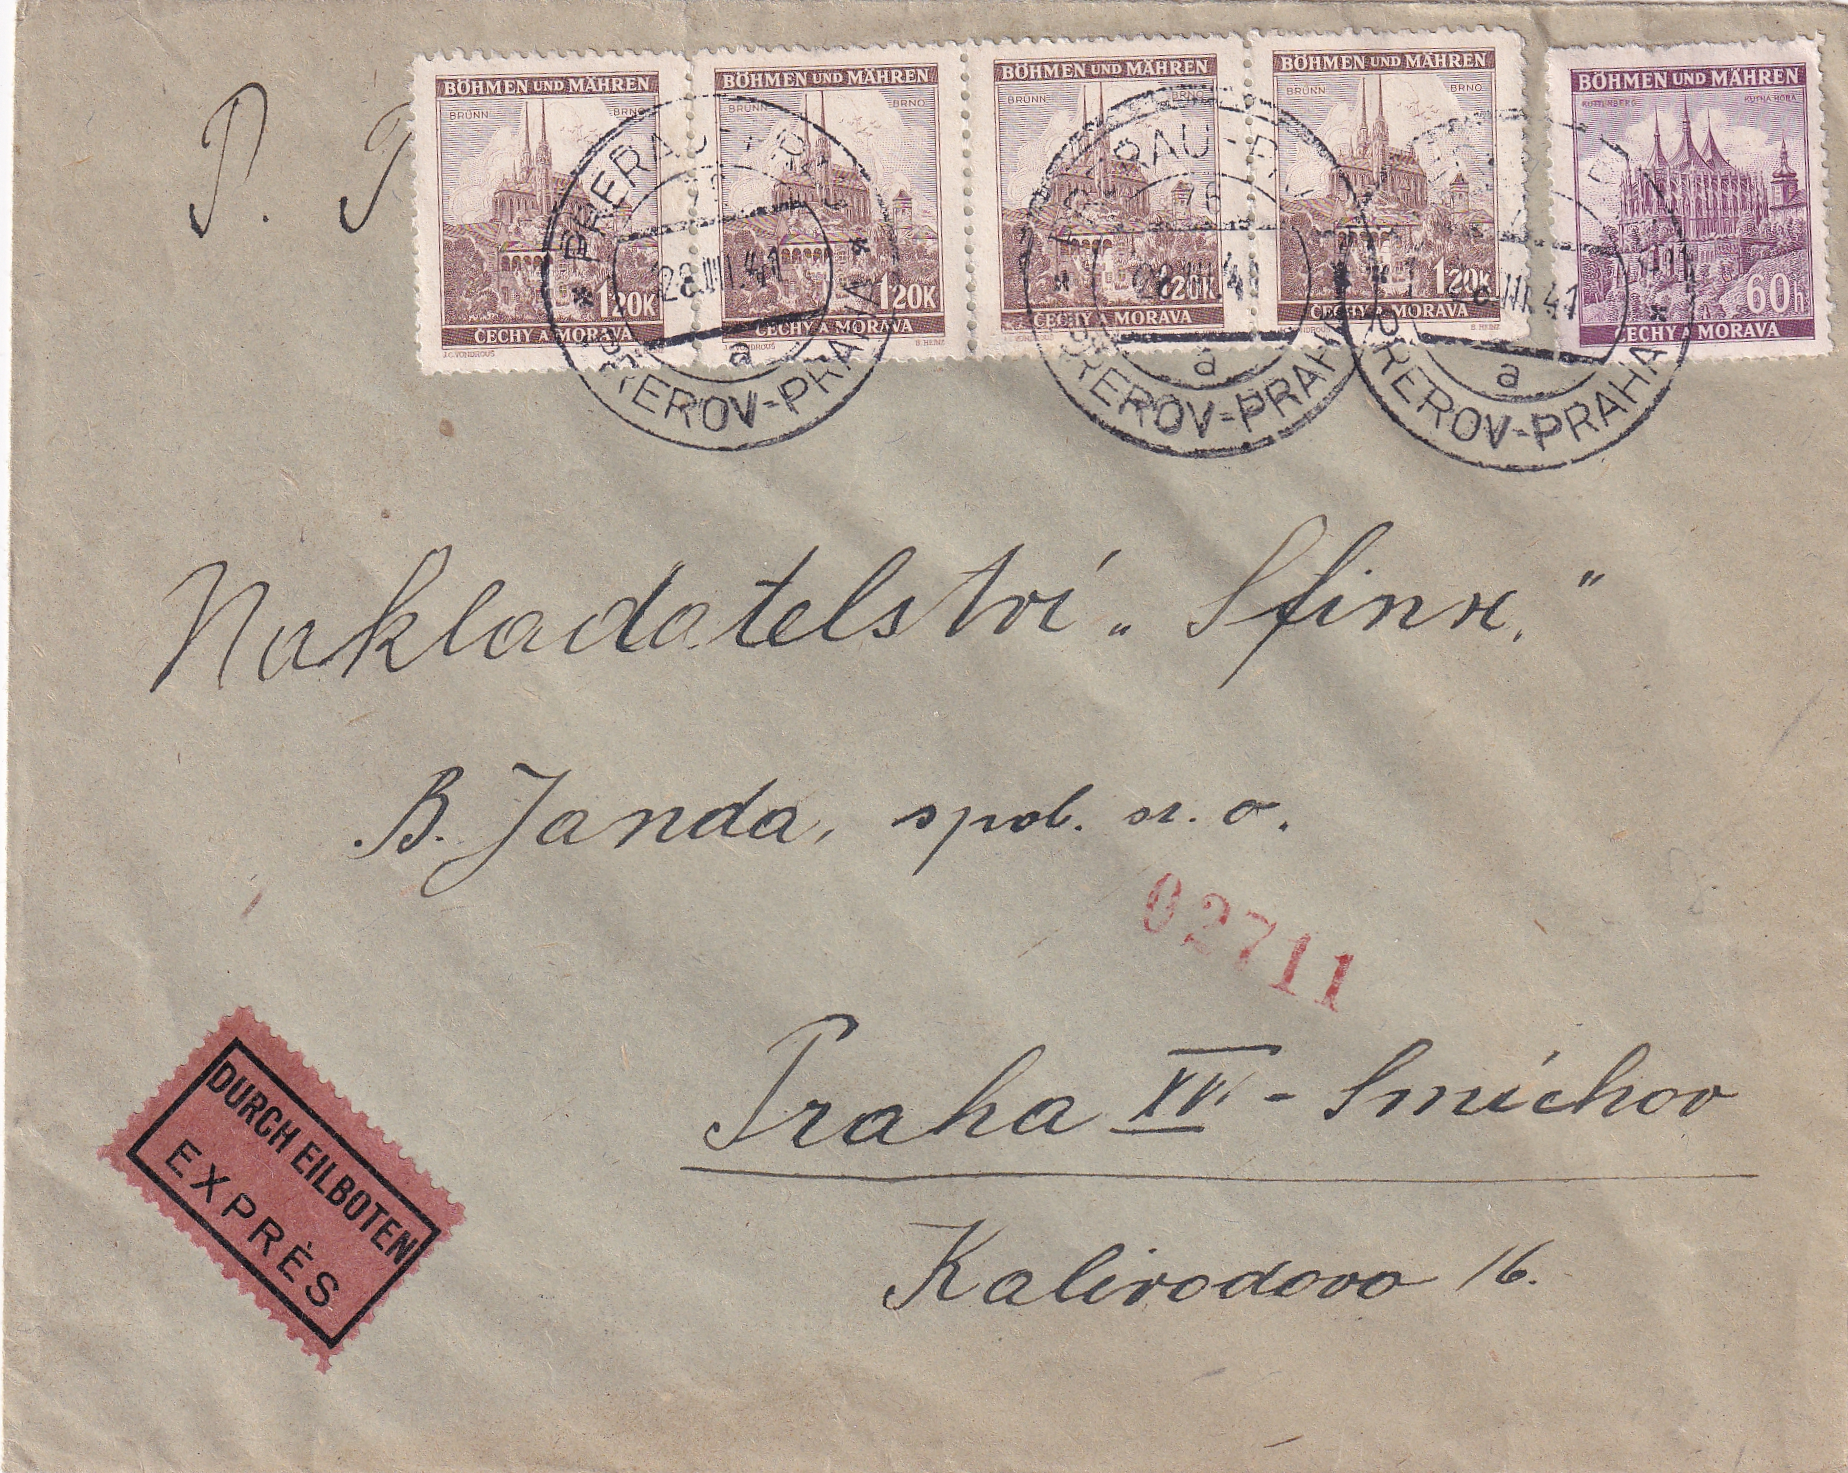 BÖHMEN UND MÄHREN
BRÜNN BRNO
1.20K
ČECHY A MORAVA
J.C. VONDROUŠ
BÖHMEN UND MÄHREN
BRÜNN BRNO
1.20K
ČECHY A MORAVA
B. HEINZ
BÖHMEN UND MÄHREN
BRÜNN BRNO
1.20K
ČECHY A MORAVA
BÖHMEN UND MÄHREN
BRÜNN BRNO
1.20K
ČECHY A MORAVA
B. HEINZ
BÖHMEN UND MÄHREN
KUTTENBERG KUTNÁ HORA
60h
ČECHY A MORAVA
PRERAU
28.III.41
a
PŘEROV-PRAHA
PRERAU
76
28.III.41
a
PŘEROV-PRAHA
III.41
a
PŘEROV-PRAHA
P.
Nakladatelství „Sfinx,"
B. Janda, spol. s r. o.
02711
Praha XVI. - Smíchov
DURCH EILBOTEN
EXPRÈS
16.